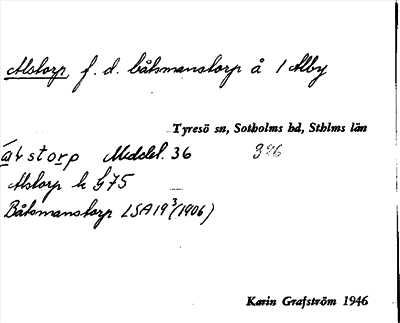 Alstorp, f. d. båtsmanstorp å / Alby
Tyresö sn, Sotholms hd, Sthlms län
álstorp Meddel. 36 396
Alstorp h G75
Båtsmanstorp LSA 19 3/(1906)
Karin Grafström 1946